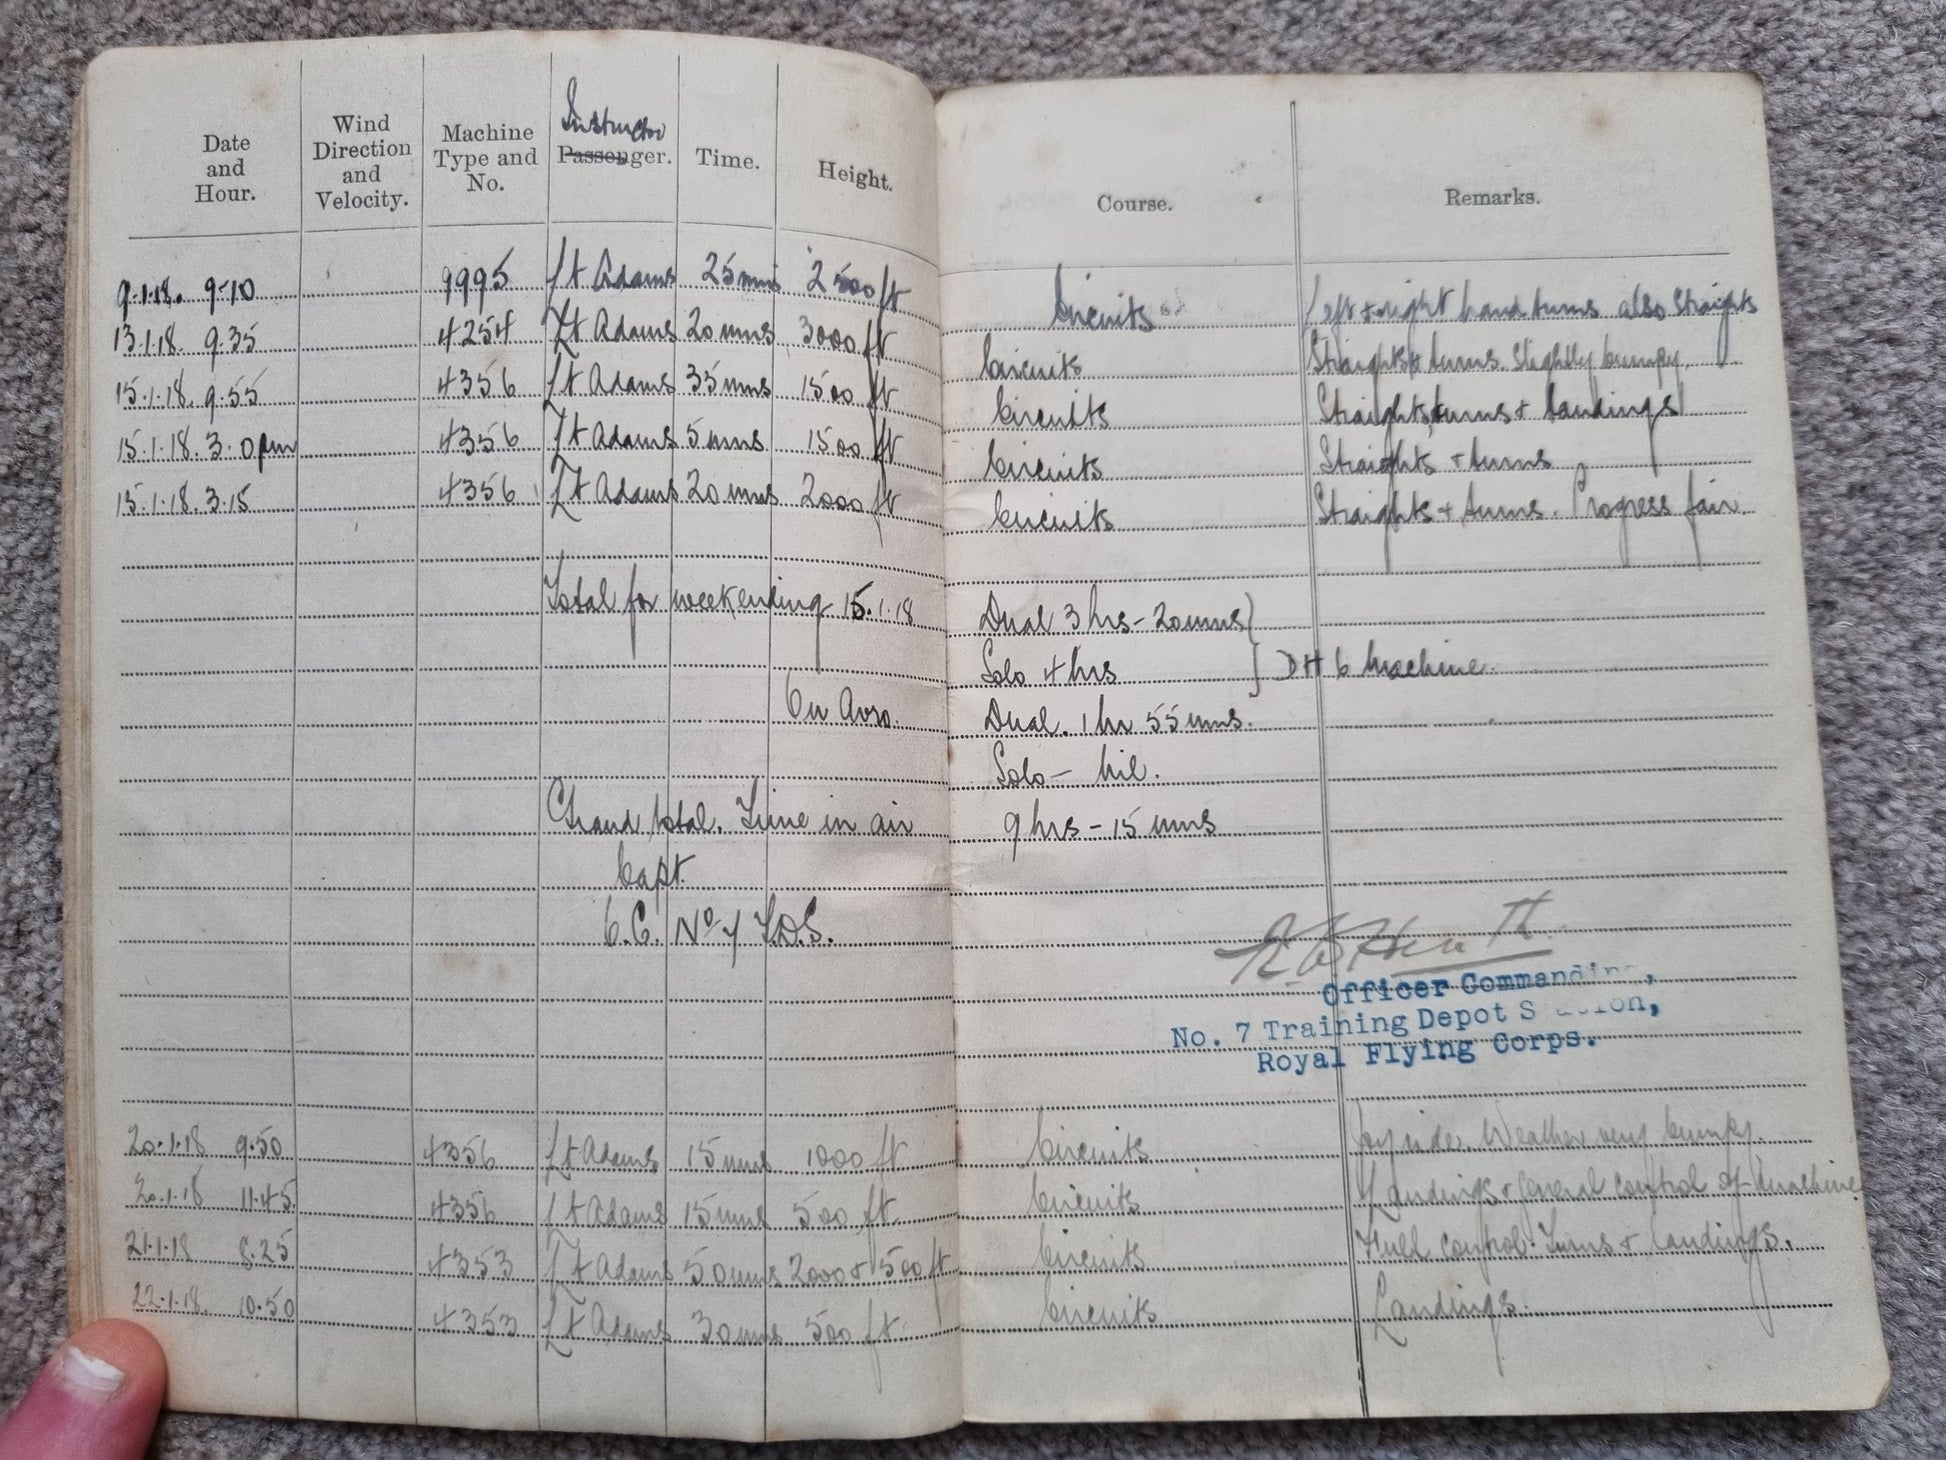 Date and Hour. Wind Direction and Velocity. Machine Type and No. Instructor Passenger. Time. Height. Course. Remarks.
9.1.18. 9-10 9995 Lt Adams 25 mins 2500 ft Circuits Left & right hand turns also straights
13.1.18. 9.35 4254 Lt Adams 20 mins 3000 ft Circuits Straights & turns. Slightly bumpy.
15.1.18. 9.55 4356 Lt Adams 35 mins 1500 ft Circuits Straights, turns & landings
15.1.18. 3.0 pm 4356 Lt Adams 5 mins 1500 ft Circuits Straights & turns
15.1.18. 3.15 4356 Lt Adams 20 mins 2000 ft Circuits Straights & turns. Progress fair.
Total for week ending 15.1.18 Dual 3 hrs - 20 mins
Solo 4 hrs } DH 6 Machine.
On Avro. Dual. 1 hr 55 mins.
Solo - Nil.
Grand total. Time in air 9 hrs - 15 mins
Capt.
O.C. No 7 T.D.S.
Officer Commanding,
No. 7 Training Depot Station,
Royal Flying Corps.
20.1.18 9.50 4356 Lt Adams 15 mins 1000 ft Circuits Joy ride. Weather very bumpy.
20.1.18 11.45 4356 Lt Adams 15 mins 500 ft. Circuits Landings & general control of machine
21.1.18 8.25 4353 Lt Adams 50 mins 2000 & 500 ft Circuits Full control. Turns & landings.
22.1.18. 10.50 4353 Lt Adams 30 mins 500 ft. Circuits Landings.